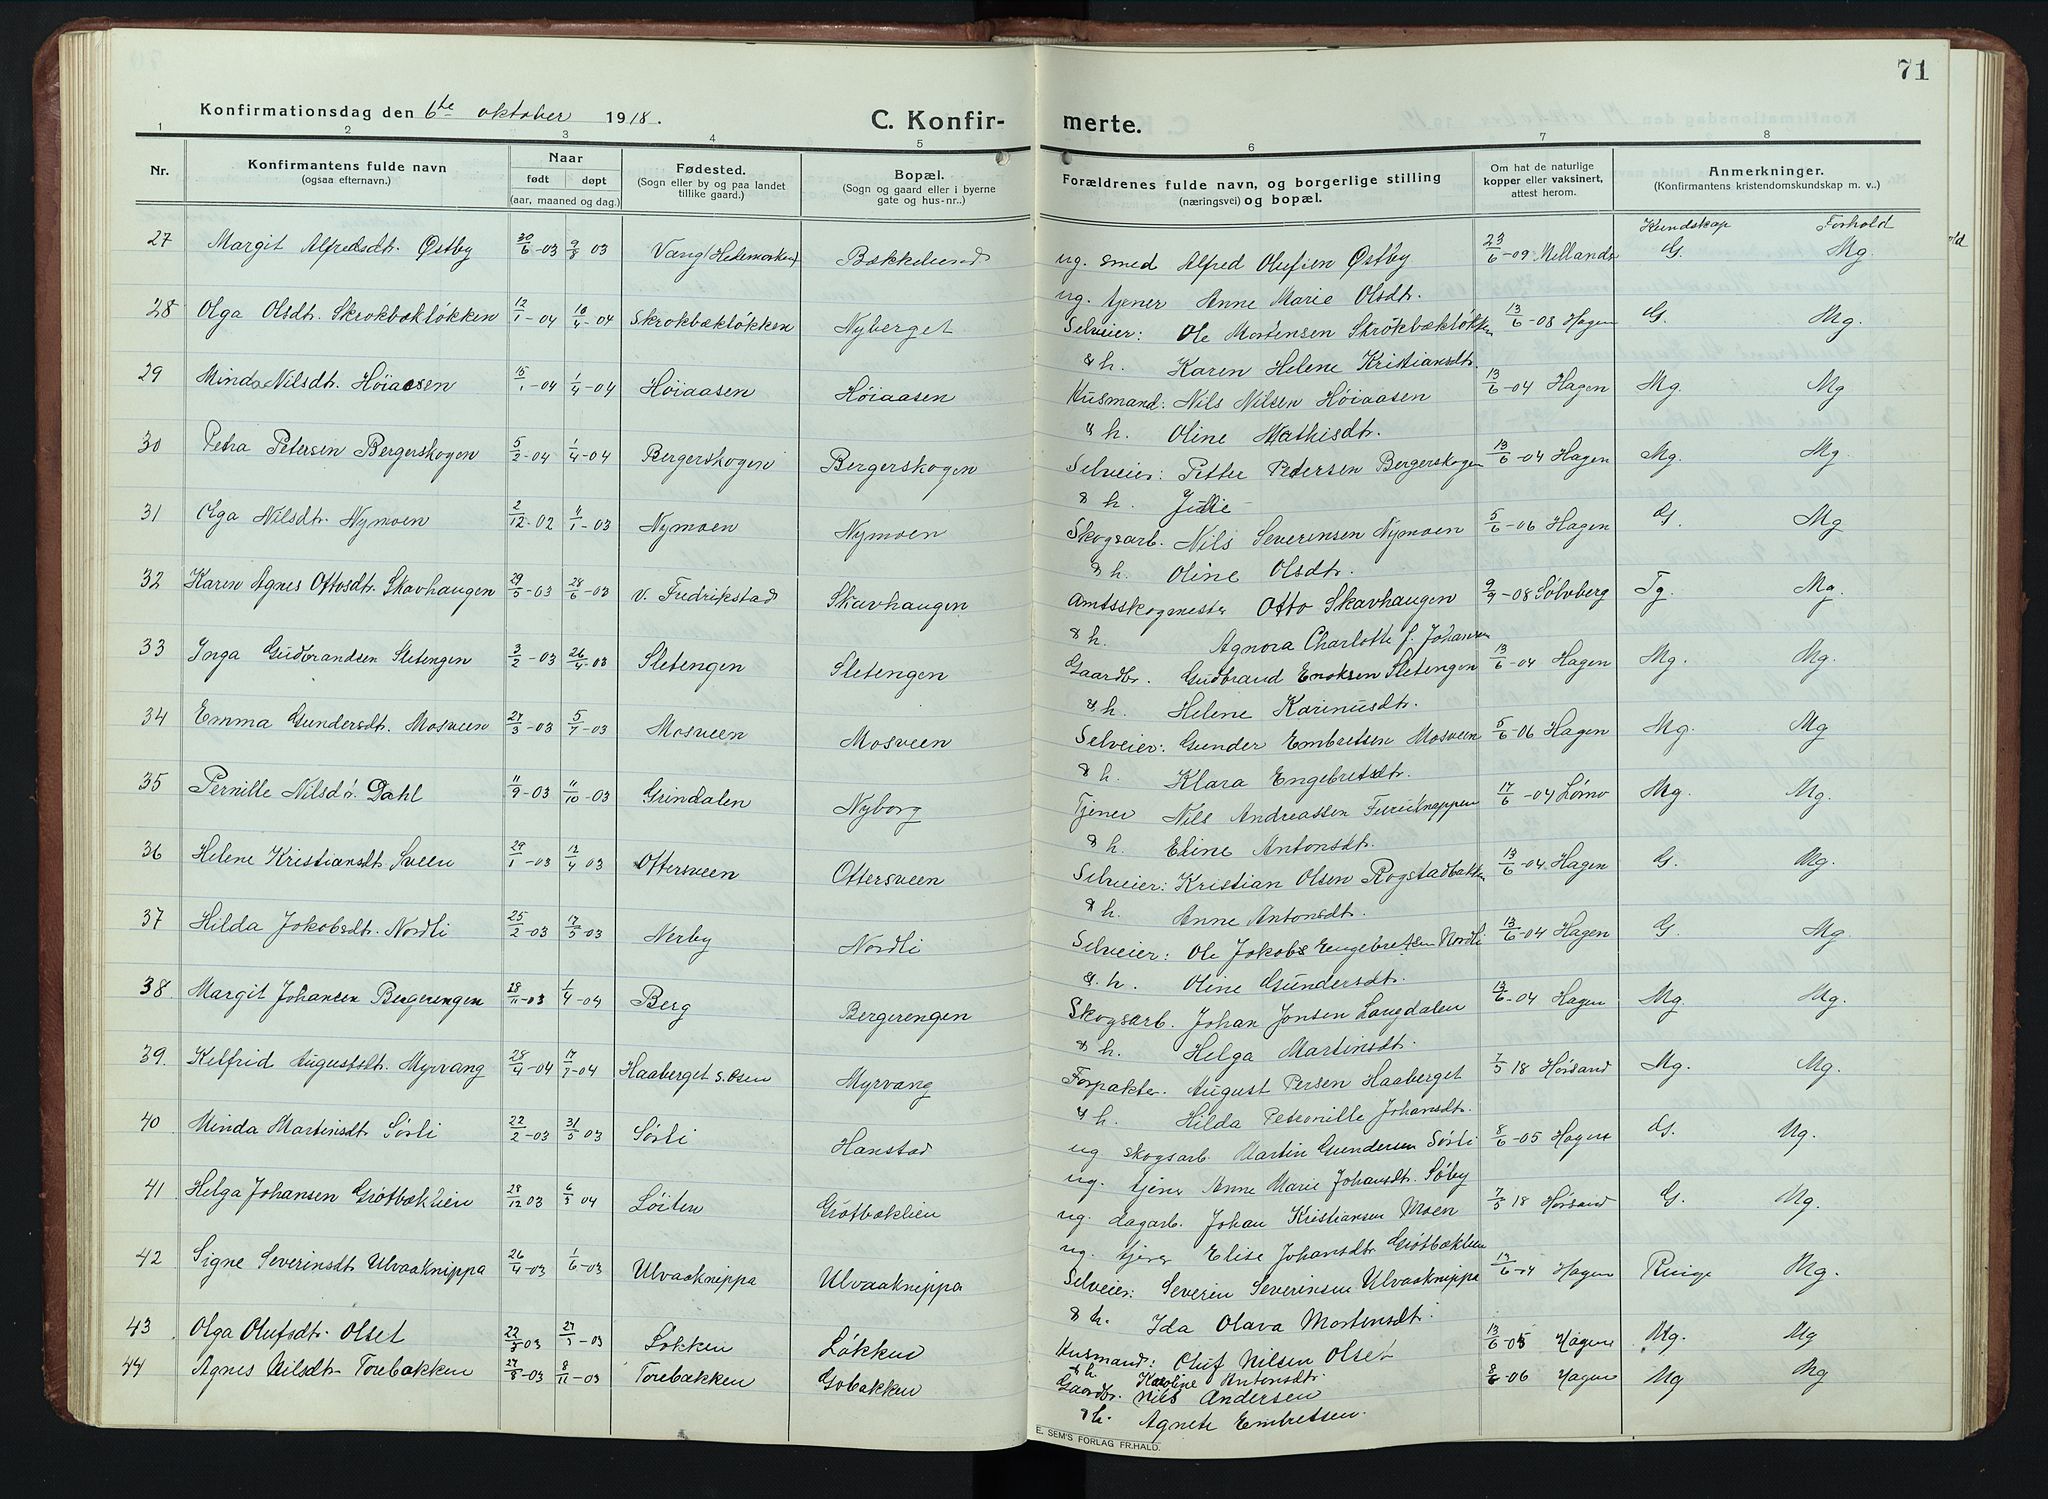 71
Konfirmationsdag den 6te oktober 1918.
C. Konfir- merte.
1 2 3 4 5 6 7 8
Nr. Konfirmantens fulde navn (ogsaa efternavn.) Naar født døpt (aar, maaned og dag.) Fødested. (Sogn eller by og paa landet tillike gaard.) Bopæl. (Sogn og gaard eller i byerne gate og hus-nr..) Forældrenes fulde navn, og borgerlige stilling (næringsvei) og bopæl. Om hat de naturlige kopper eller vaksinert, attest herom. Anmerkninger. (Konfirmantens kristendomskundskap m. v..)
Kundskap Forhold
27 Margit Alfredsdt. Østby 30/6-03 9/8 03 Vang (Hedemarken) Bækkelund ug. smed Alfred Olufsen Østby 23/6-09 G. Mg.
ug. tjener Anne Marie Olsdt.
28 Olga Olsdt. Skrokbækløkken 12/1-04 10/4-04 Skrokbækløkken Nyberget Selveier: Ole Mortensen Skrokbækløkken 13/6-08 Hagen G. Mg.
& h. Karen Helene Kristiansdt.
29 Minda Nilsdt. Høiaasen 15/1-04 1/4-04 Høiaasen Høiaasen Husmand: Nils Nilsen Høiaasen 13/6-04 Hagen Mg. Mg
& h. Oline Mathisdt.
30 Petra Petersen Bergerskogen 5/2-04 1/4-04 Bergerskogen Bergerskogen Selveier: Petter Pedersen Bergerskogen 13/6-04 Hagen Mg. Mg.
& h. Julie
31 Olga Nilsdt. Nymoen 2/12-02 11/1-03 Nymoen Nymoen Skogsarb. Nils Severinsen Nymoen 5/6-06 Hagen G. Mg
& h. Oline Olsdt.
32 Karen Agnes Ottosdt. Skavhaugen 29/5-03 28/6-03 v. Fredrikstad Skavhaugen Amtsskogmester Otto Skavhaugen 9/9-08 Sølvberg Tg. Mg.
& h. Agnora Charlotte f. Johansen
33 Inga Gudbrandsen Sletengen 3/2-03 26/4-03 Sletengen Sletengen Gaardbr. Gudbrand Enoksen Sletengen 13/6-04 Hagen Mg. Mg.
& h. Helene Karinusdt.
34 Emma Gundersdt. Mosveen 27/3-03 5/7-03 Mosveen Mosveen Selveier: Gunder Embretsen Mosveen 5/6-06 Hagen Mg. Mg
& h. Klara Engebretsdt.
35 Pernille Nilsdt. Dahl 11/9-03 11/10-03 Grindalen Nyborg Tjener Nils Andreassen 17/6-04 Lømo Mg. Mg.
& h. Eline Antonsdt.
36 Helene Kristiansdt. Sveen 29/1-03 13/4 03 Ottersveen Ottersveen Selveier: Kristian Olsen Rogstadbakken 13/6-04 Hagen G. Mg.
& h. Anne Antonsdt.
37 Hilda Jakobsdt. Nordli 25/2-03 17/5-03 Nerby Nordli Selveier: Ole Jakobs Engebretsen Nordli 13/6-04 Hagen G. Mg.
& h. Oline Gundersdt.
38. Margit Johansen Bergerengen 28/11-03 1/4-04 Berg Bergerengen Skogsarb. Johan Jonsen Langdalen 13/6-04 Hagen Mg. Mg.
& h. Helga Martinsdt.
39. Kelfrid Augustsdt. Myrvang 28/4-04 17/7-04 Haaberget s. Osen Myrvang Forpakter. August Persen Haaberget 7/5 18 Hørsand Mg. Mg.
& h. Hilda Petronille Johansdt.
40 Minda Martinsdt Sørli 22/2-03 31/5 03 Sørli Hanstad ug skogsarb. Martin Gundersen Sørli 8/6-05 Hagen G. Mg.
ug. tjener Anne Marie Johansdt. Søby
41 Helga Johansen Grøtbæklien 28/12 03 6/3 04 Løiten Grøtbæklien ug. dagarb. Johan Kristiansen Moen 7/5 18 Hørsand G. Mg.
ug. tjener Elise Johansdt Grøtbæklien
42 Signe Severinsdt Ulvaaknippa 26/4-03 1/6-03 Ulvaaknippa Ulvaaknippa Selveier: Severin Severinsen Ulvaaknippa 13/6-04 Hagen Ringe Mg.
& h. Ida Olava Mortensdt.
43 Olga Olufsdt. Olset 22/3 03 27/5-03 Løkken Løkken Husmand: Oluf Nilsen Olset 13/6-05 Hagen Mg. Mg
& h. Karoline Antonsdt.
44 Agnes Nilsdt. Torebakken 27/8-03 8/11-03 Torebakken Gobakken Gaardbr. Nils Andersen 8/6-06 Hagen Mg Mg
& h. Agnete Embretsen.
E. SEM'S FORLAG FR.HALD.